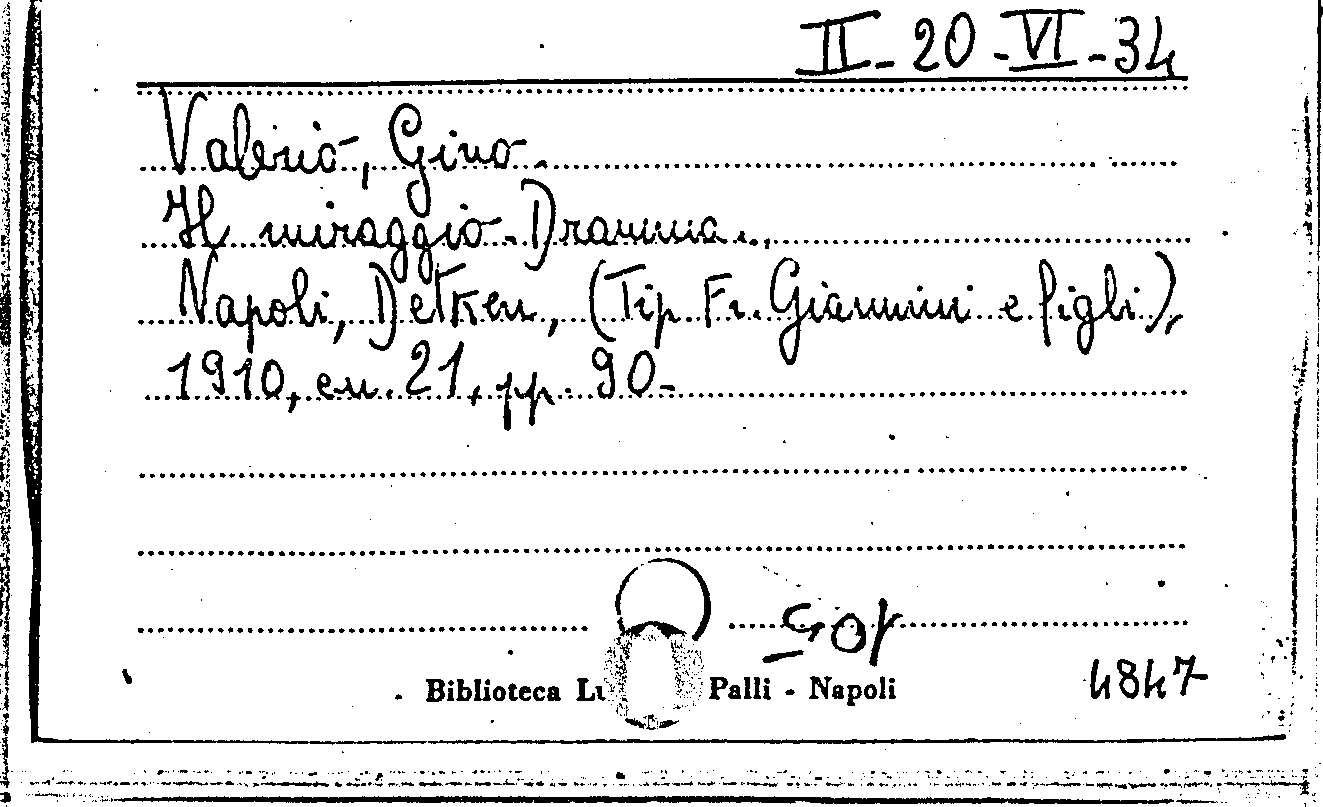 II - 20 - VI - 34
Valerio, Gino.
Il miraggio - Dramma..
Napoli, Detken, (Tip. Fr. Giannini e figli),
1910, cm. 21, pp. 90-
Biblioteca Palli - Napoli
4847